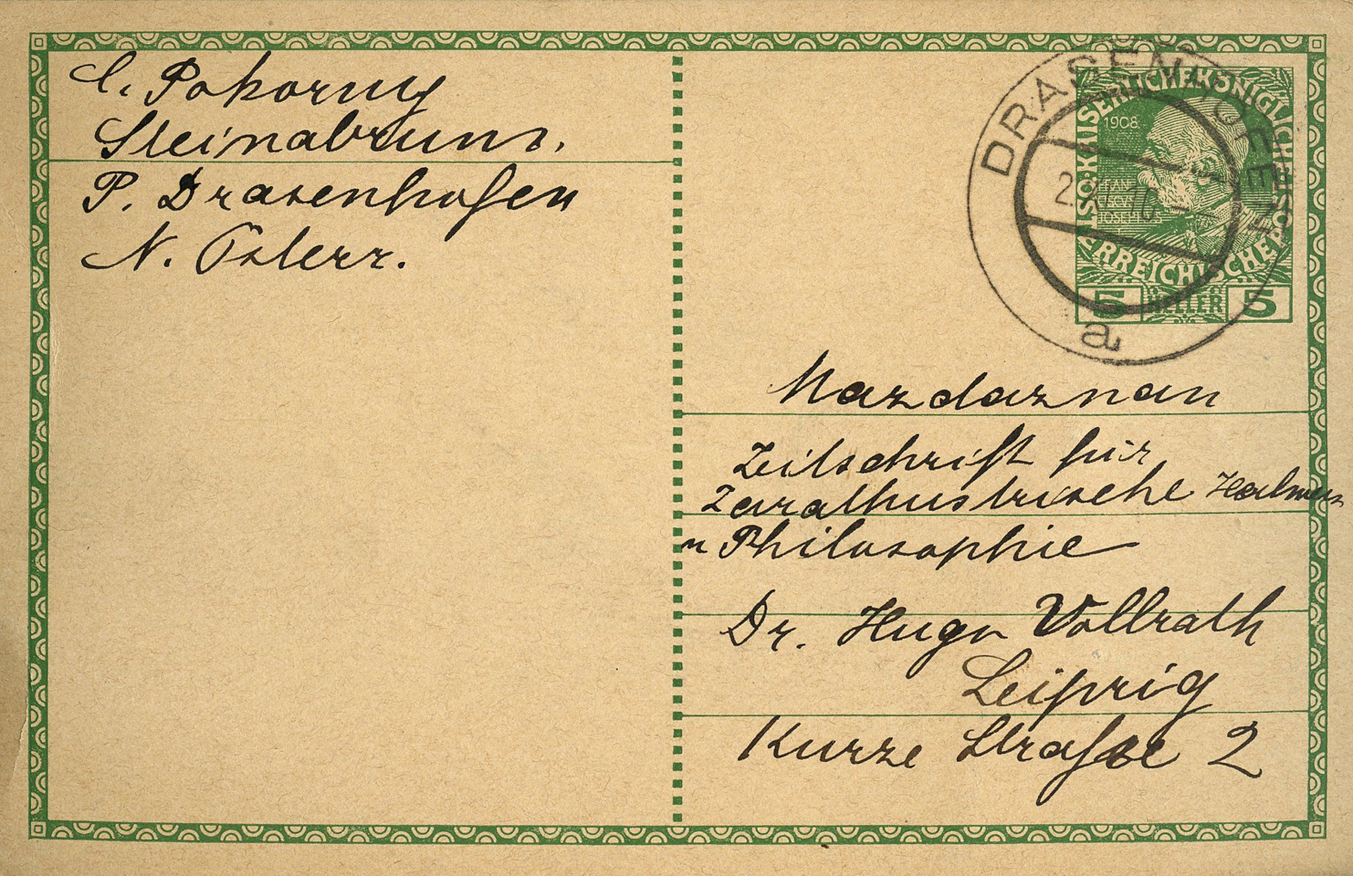 C. Pokorny
Steinabrunn.
P. Drasenhofen
N. Österr.
DRASENHOFEN
a
KAISERLICHE KÖNIGLICHE
ÖSTERREICHISCHE
1908
FRAN
CISCVS
JOSEPH
5 HELLER 5
Mazdaznan
Zeitschrift für
Zarathustrische
u Philosophie
Dr. Hugo Vollrath
Leipzig
Kurze Straße 2